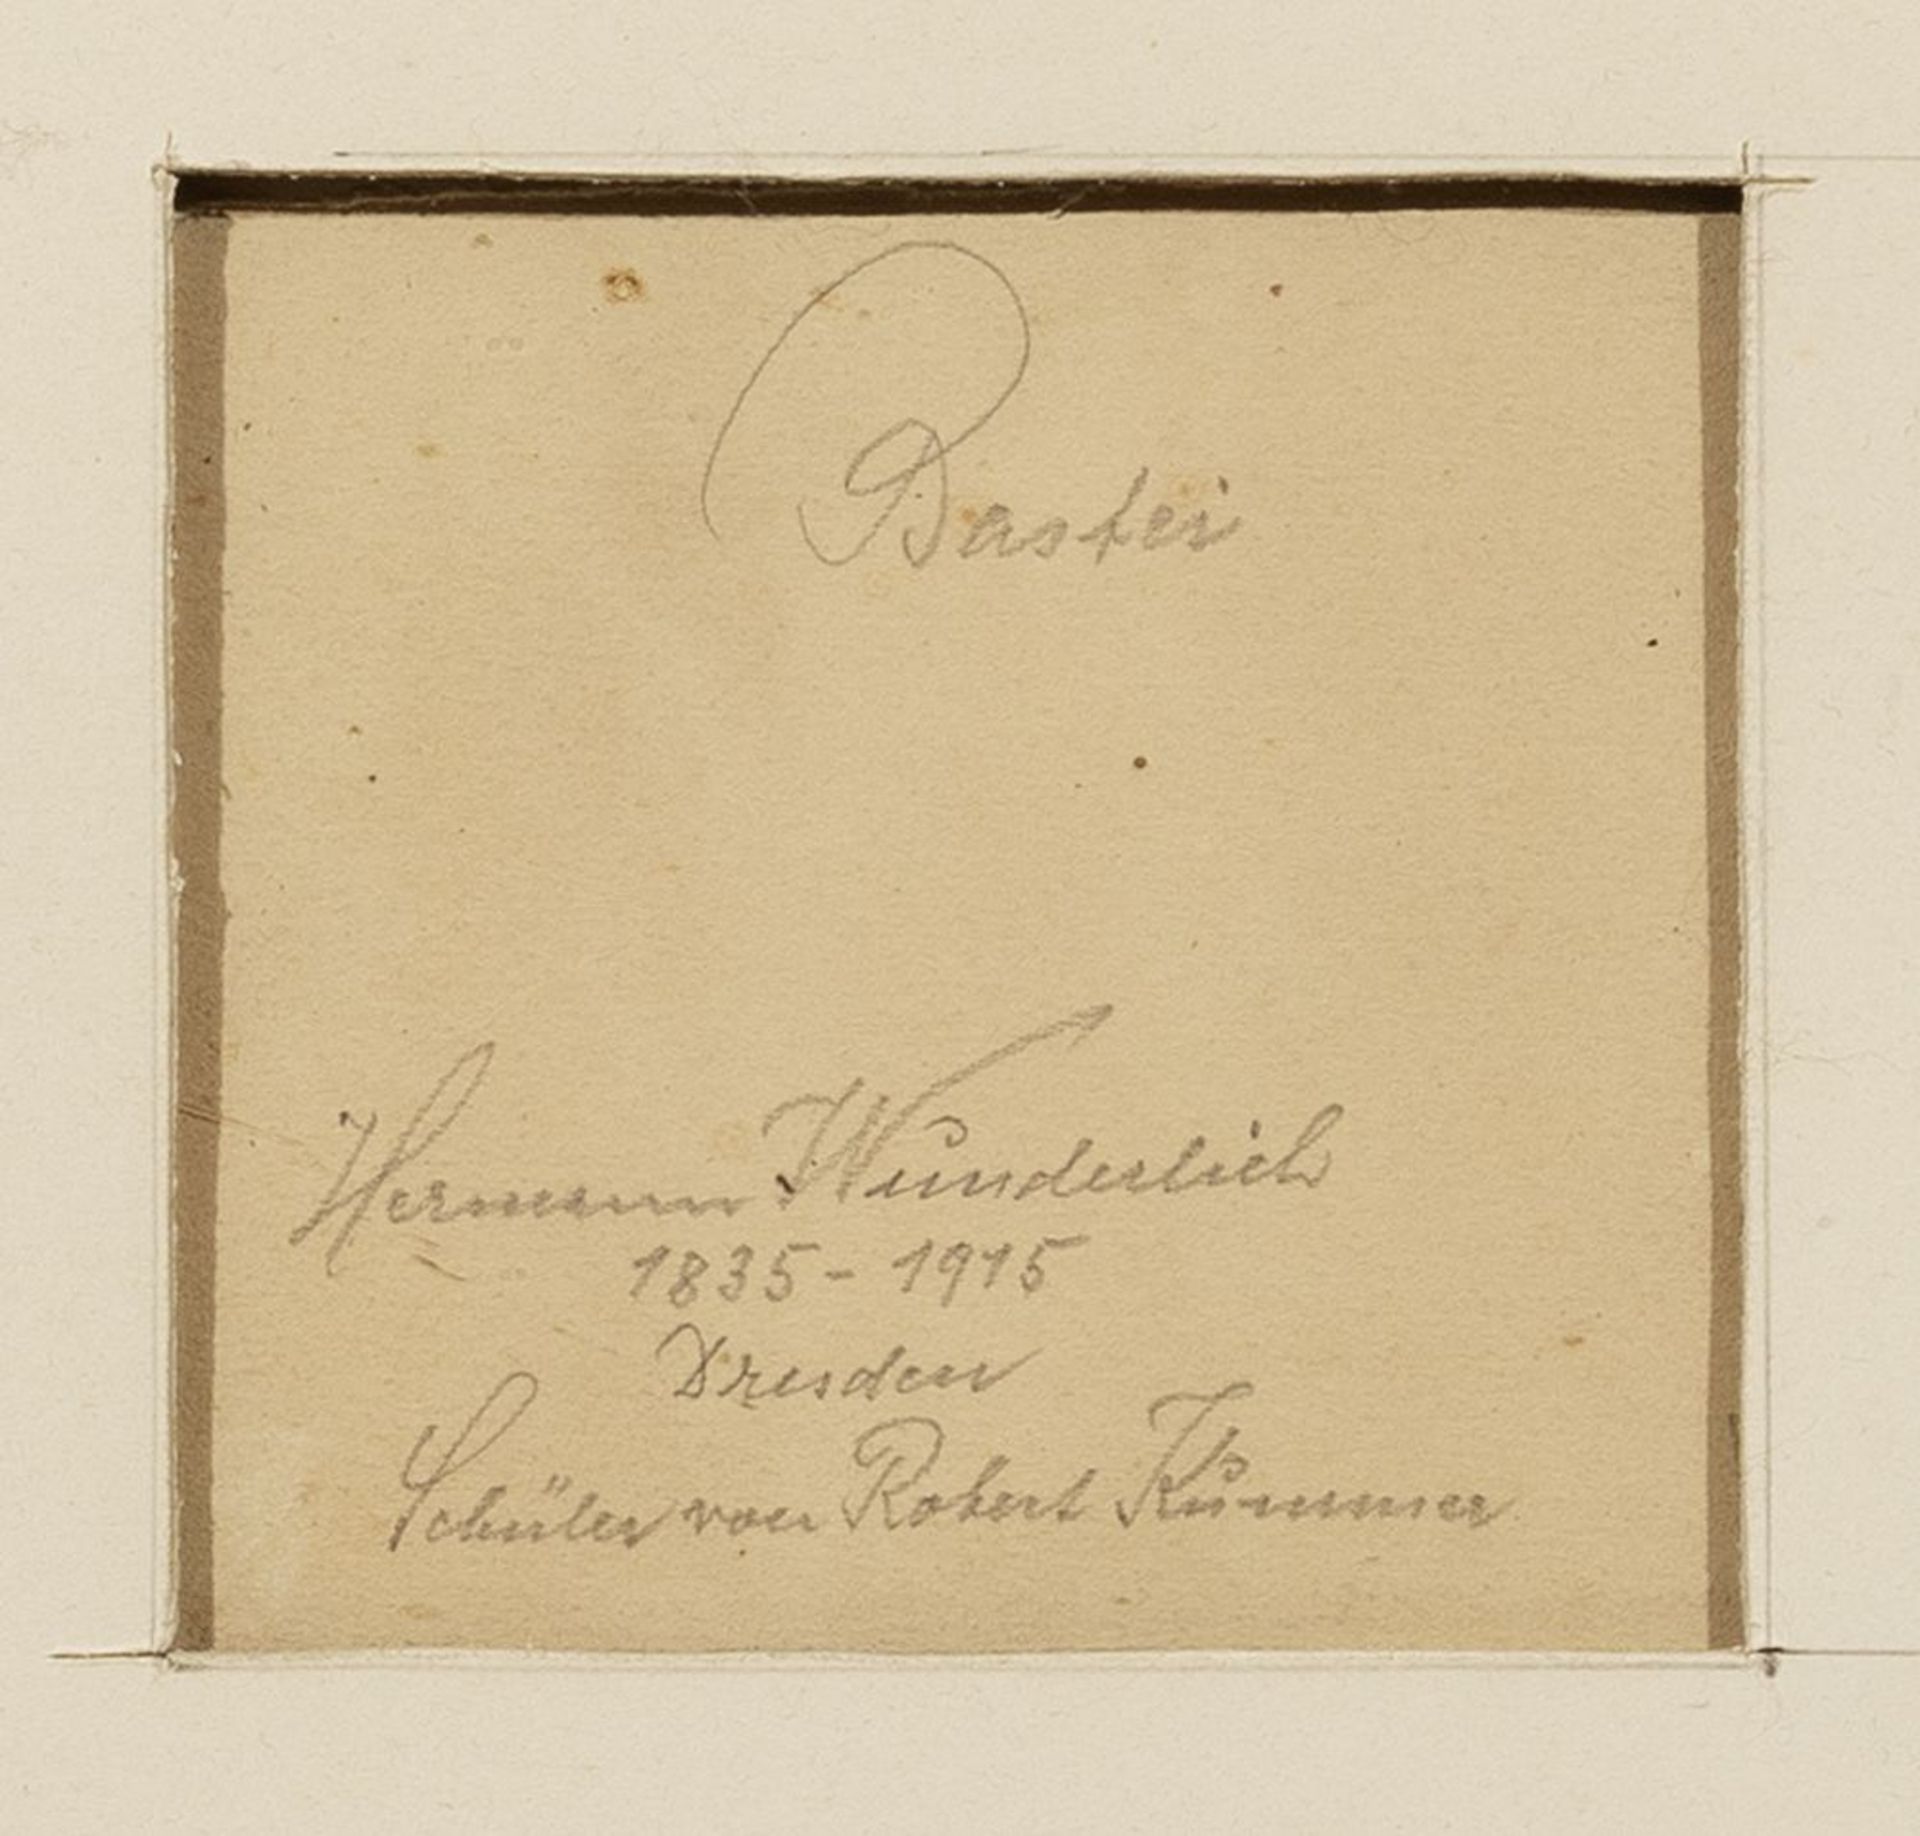 Bastei
Hermann Wunderlich
1835 - 1915
Dresden
Schüler von Robert Kummer